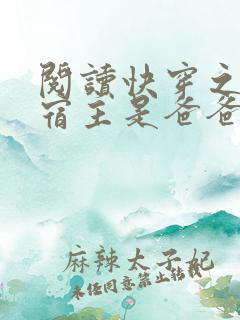 閱讀快穿之
宿主是爸爸
麻辣太子妃
未任同意禁止轉載